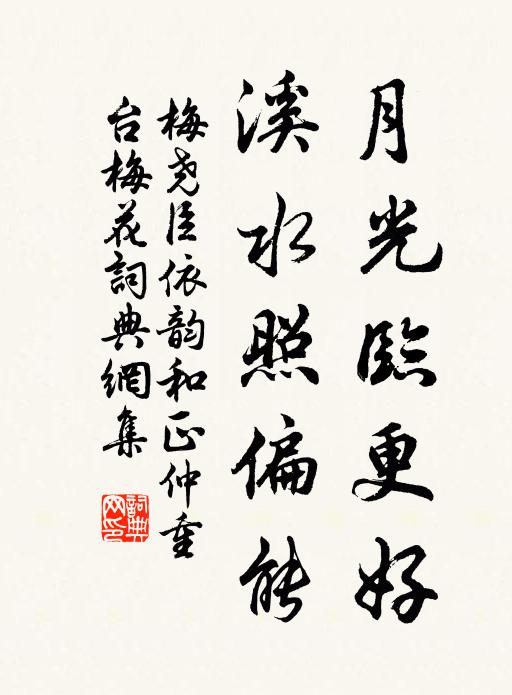 月光臨更好
溪水照偏能
梅堯臣依韵和正仲重
台梅花詞典網集
詞典网印